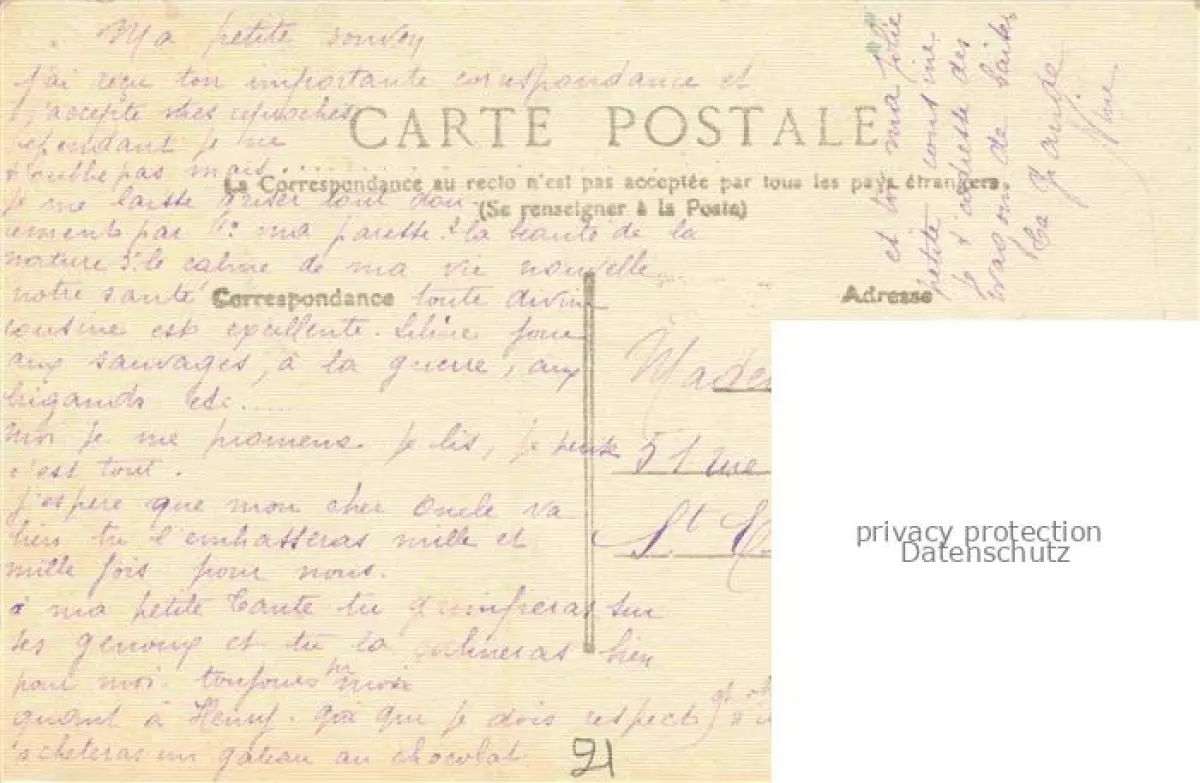 Ma petite
j'ai reçu ton importante correspondance et
j'accepte mes reproches
cependant je ne
t'oublie pas mais......
CARTE POSTALE
La Correspondance au recto n'est pas acceptée par tous les pays étrangers.
(Se renseigner à la Poste)
je me laisse griser tout dou
cement par 1: ma paresse. 2 la beauté de la
nature 3. le calme de ma vie nouvelle
notre santé toute divine
Correspondance
Adresse
cousine est excellente. joue
aux sauvages, à la guerre, aux
brigands etc.....
Moi je me promène je lis, je
c'est tout.
j'espère que mon cher Oncle va
bien tu l'embrasseras mille et
mille fois pour nous.
à ma petite tante tu grimperas sur
ses genoux et tu la câlineras bien
pour moi toujours
quant à Henry. que je dois respect
achèteras un gâteau au chocolat
et toi ma jolie
petite cousine
l'adresse des
wagons de
Ta
51 rue
St
91
privacy protection
Datenschutz